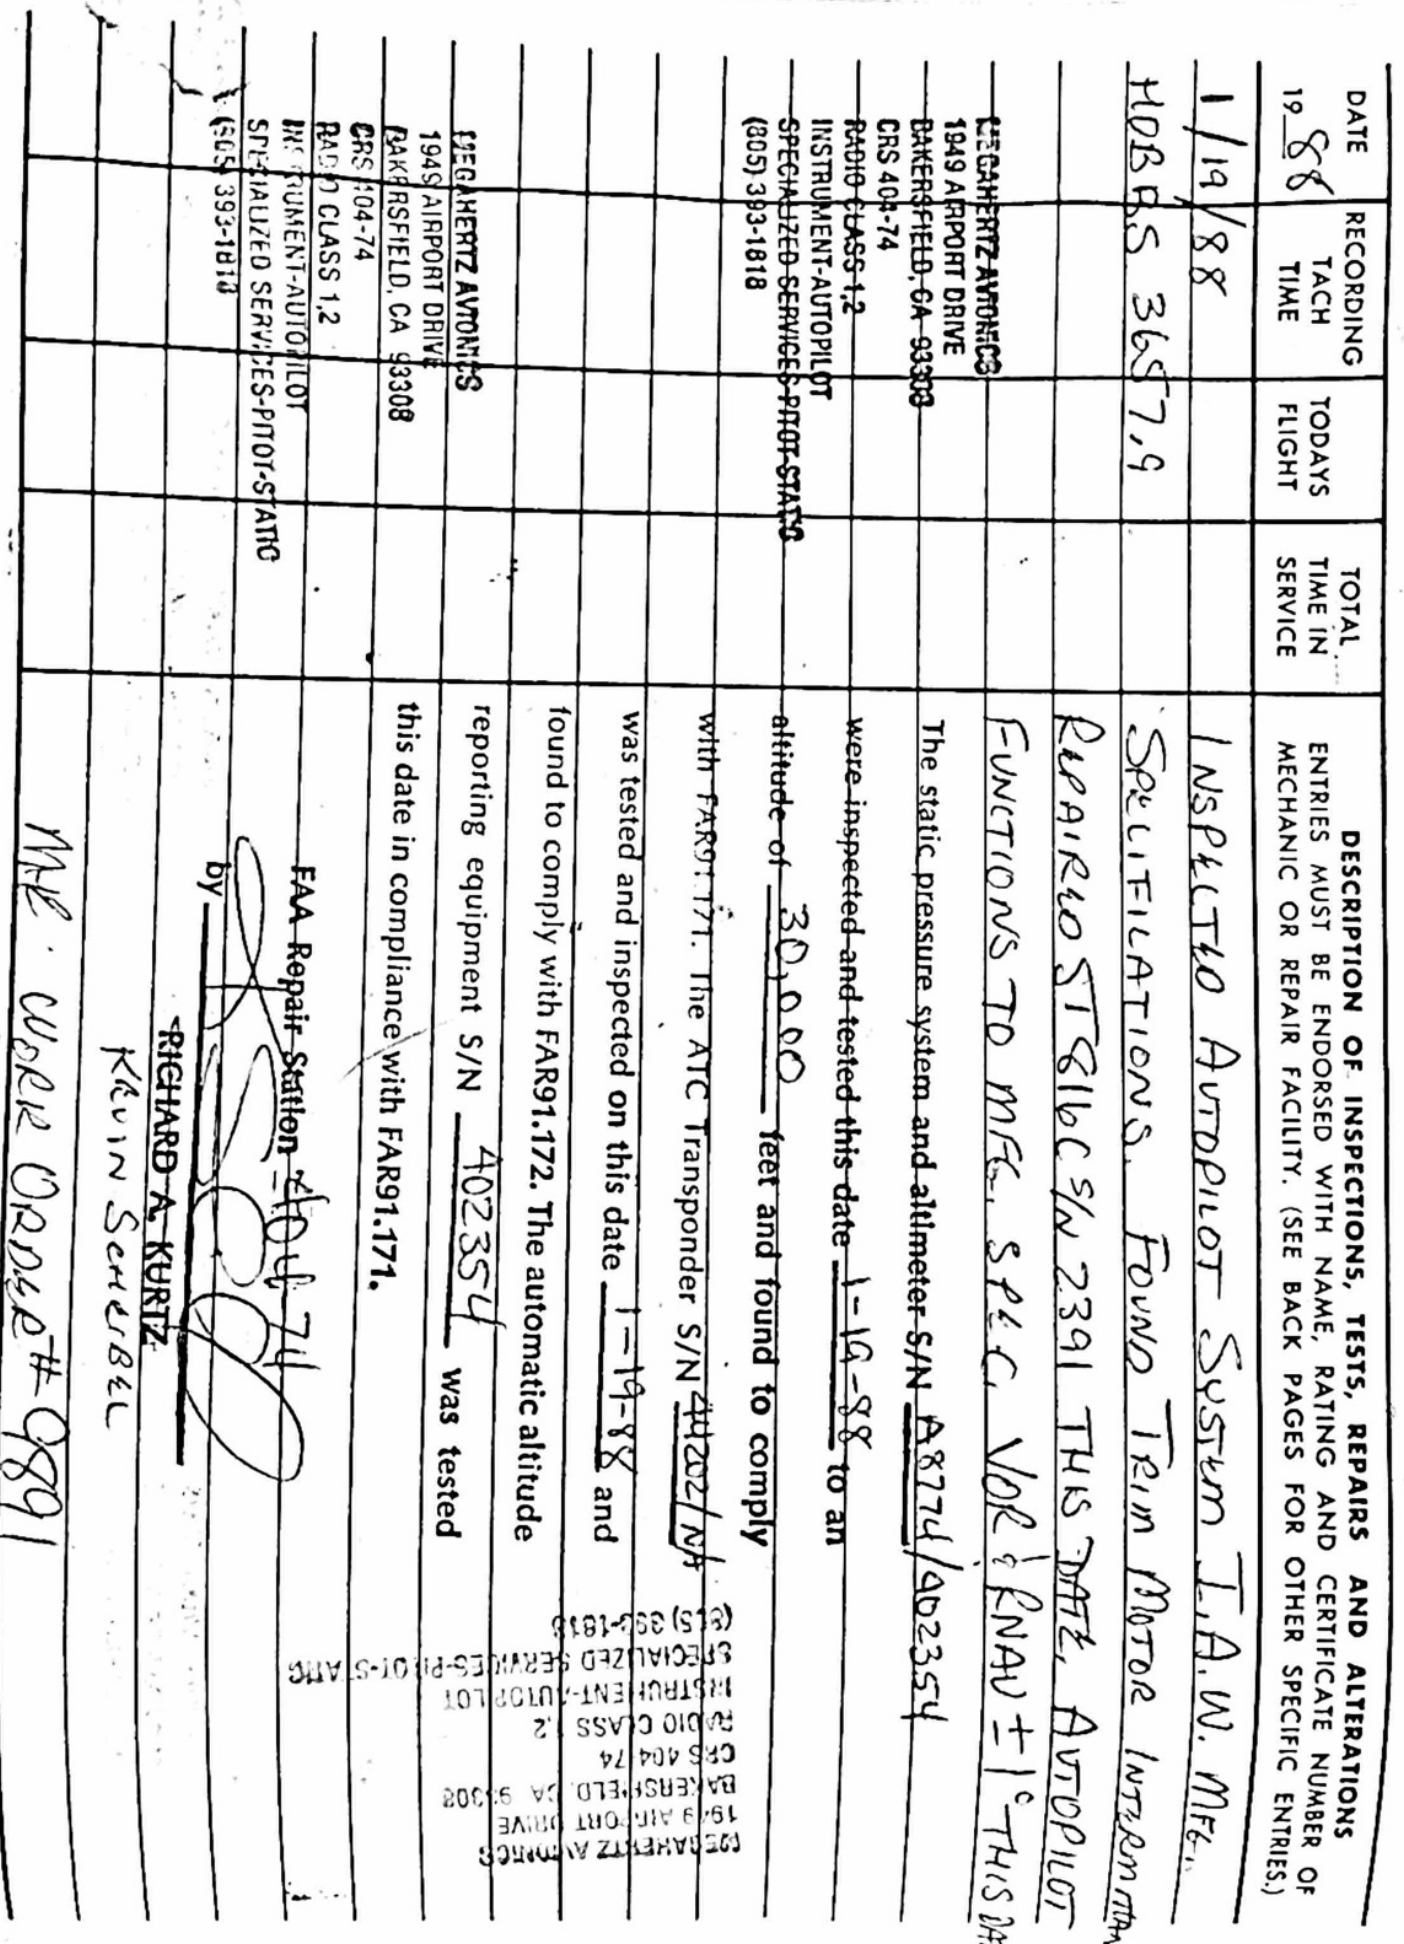 DATE
19 88
RECORDING
TACH
TIME
TODAYS
FLIGHT
TOTAL
TIME IN
SERVICE
DESCRIPTION OF INSPECTIONS, TESTS, REPAIRS AND ALTERATIONS
ENTRIES MUST BE ENDORSED WITH NAME, RATING AND CERTIFICATE NUMBER OF
MECHANIC OR REPAIR FACILITY. (SEE BACK PAGES FOR OTHER SPECIFIC ENTRIES.)
1/19/88
INSPECTED AUTOPILOT SYSTEM I.A.W. MFG.
HOBBS 3657.9
SPECIFICATIONS. FOUND TRIM MOTOR
REPAIRED ST816C S/N 2391 THIS DATE. AUTOPILOT
FUNCTIONS TO MFG. SPEC. VOR & RNAV ± 1° THIS
MEGAHERTZ AVIONICS
1949 AIRPORT DRIVE
BAKERSFIELD, CA 93308
CRS 404-74
RADIO CLASS 1,2
INSTRUMENT-AUTOPILOT
SPECIALIZED SERVICES-PITOT-STATIC
(805) 393-1818
The static pressure system and altimeter S/N A8774/402354
were inspected and tested this date 1-19-88 to an
altitude of 30,000 feet and found to comply
with FAR91.171. The ATC Transponder S/N 44202/NA
was tested and inspected on this date 1-19-88 and
found to comply with FAR91.172. The automatic altitude
reporting equipment S/N 402354 was tested
this date in compliance with FAR91.171.
MEGAHERTZ AVIONICS
1949 AIRPORT DRIVE
BAKERSFIELD, CA 93308
CRS 404-74
RADIO CLASS 1,2
INSTRUMENT-AUTOPILOT
SPECIALIZED SERVICES-PITOT-STATIC
(805) 393-1818
FAA Repair Station 404 74
by
RICHARD A. KURTZ
KEVIN SCHERBEL
WORK ORDER # 9891
MEGAHERTZ AVIONICS
1949 AIRPORT DRIVE
BAKERSFIELD, CA 93308
CRS 404-74
RADIO CLASS 1,2
INSTRUMENT-AUTOPILOT
SPECIALIZED SERVICES-PITOT-STATIC
(805) 393-1818